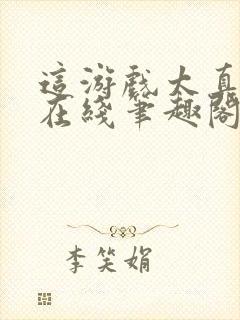 這游戲太真
在綫筆趣閣
李笑娟